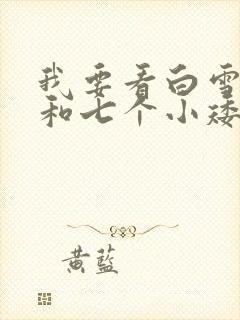 我要看白雪
和七个小矮
黄蓝